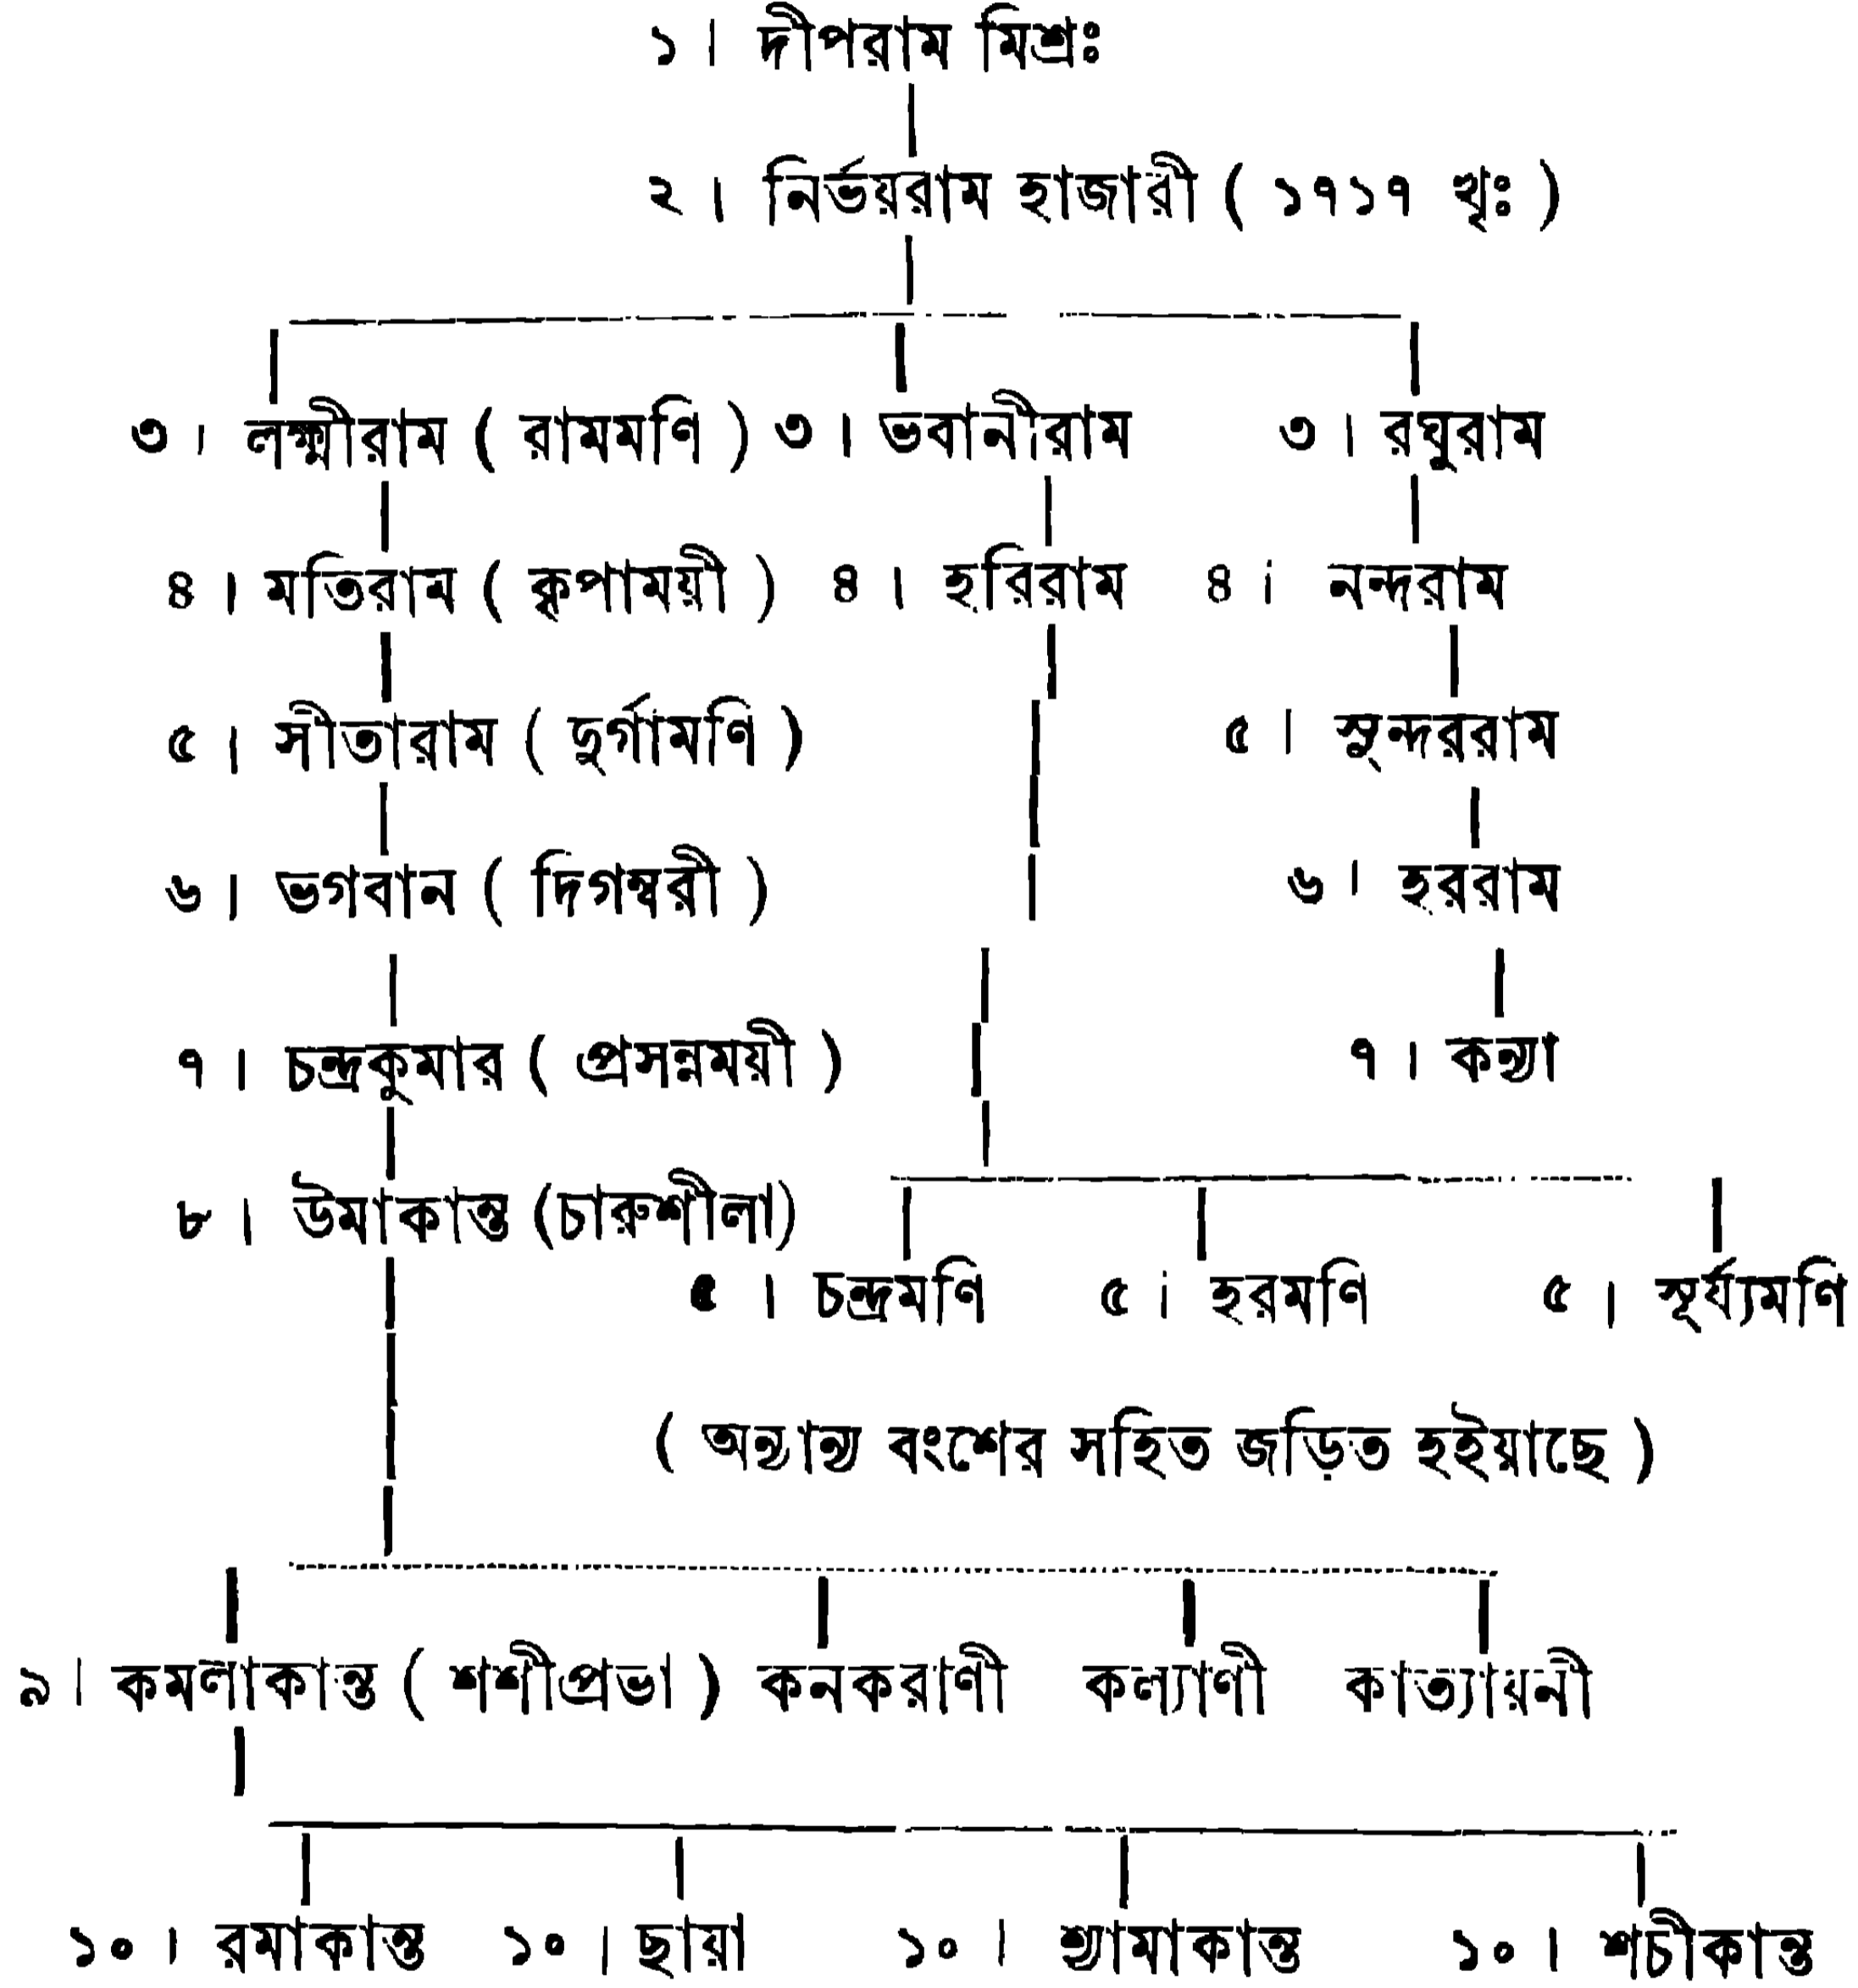 ১। দীপরাম মিশ্রঃ
২। নির্ভয়রাম হাজারী ( ১৭১৭ খৃঃ )
৩। লক্ষ্মীরাম ( রামমণি ) ৩। ভবানীরাম ৩। রঘুরাম
৪। মতিরাম ( কৃপাময়ী ) ৪। হরিরাম ৪। নন্দরাম
৫। সীতারাম ( দুর্গামণি ) ৫। সুন্দররাম
৬। ভগবান ( দিগম্বরী ) ৬। হররাম
৭। চন্দ্রকুমার ( প্রসন্নময়ী ) ৭। কন্যা
৮। উমাকান্ত (চারুশীলা)
৫। চন্দ্রমণি ৫। হরমণি ৫। সূর্য্যমণি
( অন্যান্য বংশের সহিত জড়িত হইয়াছে )
৯। কমলাকান্ত ( শশীপ্রভা ) কনকরাণী কল্যাণী কাত্যায়নী
১০। রমাকান্ত ১০। ছায়া ১০। শ্যামাকান্ত ১০। শচীকান্ত